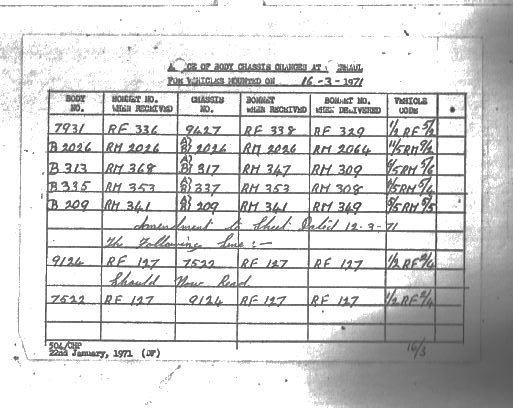 OF BODY CHASSIS CHANGES AT
FOR VEHICLES MOUNTED ON 16-3-1971
BODY NO. BONNET NO. WHEN RECEIVED CHASSIS NO. BONNET WHEN RECEIVED BONNET NO. WHEN DELIVERED VEHICLE CODE
7931 RF 336 9427 RF 338 RF 329 1/2 RF 5/2
B 2026 RM 2026 A) B) 2026 RM 2026 RM 2064
B 313 RM 368 A) B) 317 RM 347 RM 309
B 335 RM 353 A) B) 337 RM 353 RM 308
B 209 RM 341 A) B) 209 RM 341 RM 349
Amendment to Sheet Dated 12-3-71
The Following Line:-
9124 RF 127 7522 RF 127 RF 127 1/2 RF 2/4
Should Now Read
7522 RF 127 9124 RF 127 RF 127 1/2 RF 2/4
504/CHP
22nd January, 1971 (DF)
16/3